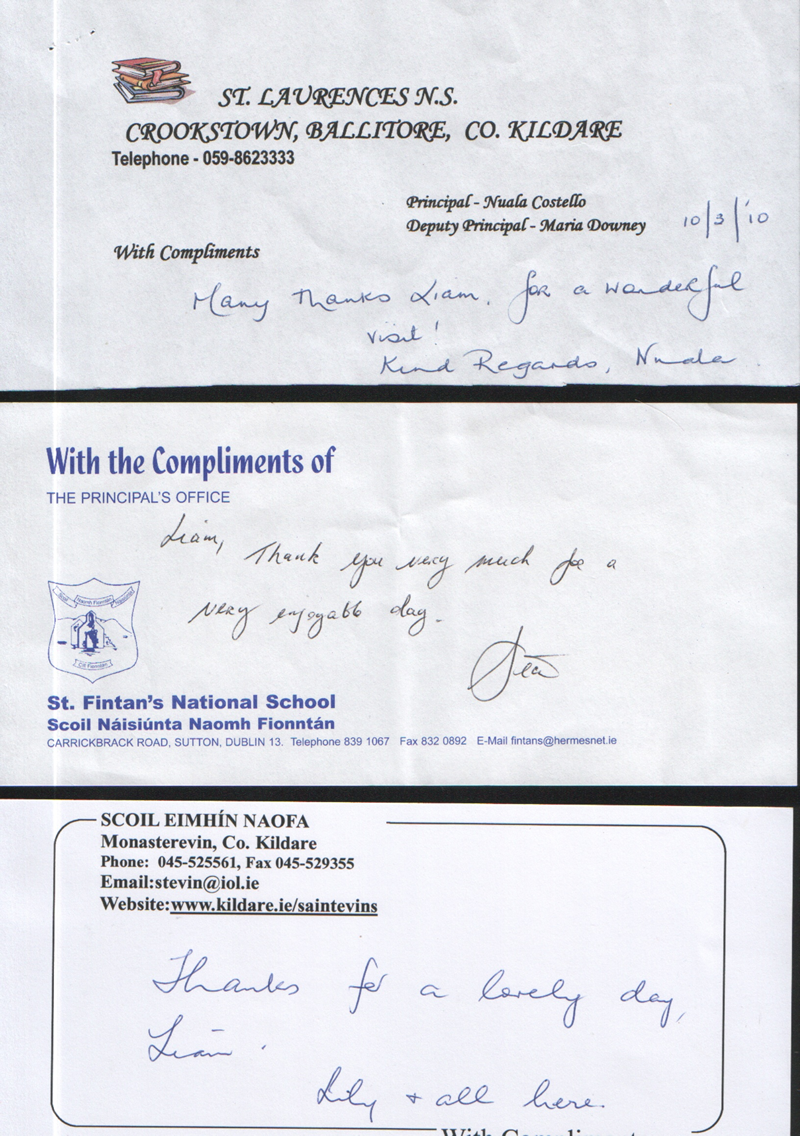 ST. LAURENCES N.S.
CROOKSTOWN, BALLITORE, CO. KILDARE
Telephone - 059-8623333
Principal - Nuala Costello
Deputy Principal - Maria Downey
10/3/'10
With Compliments
Many thanks Liam, for a wonderful
visit!
Kind Regards, Nuala
With the Compliments of
THE PRINCIPAL'S OFFICE
Liam,
Thank you very much for a
very enjoyable day.
Scoil Naomh Fionntán
St. Fintan's National School
Scoil Náisiúnta Naomh Fionntán
CARRICKBRACK ROAD, SUTTON, DUBLIN 13. Telephone 839 1067 Fax 832 0892 E-Mail fintans@hermesnet.ie
SCOIL EIMHÍN NAOFA
Monasterevin, Co. Kildare
Phone: 045-525561, Fax 045-529355
Email:stevin@iol.ie
Website:www.kildare.ie/saintevins
Thanks for a lovely day,
Liam.
Lily + all here.
With Compliments